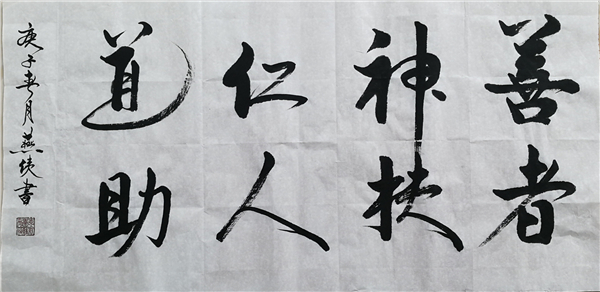 善者
神扶
仁人
道助
庚子春月燕侠書